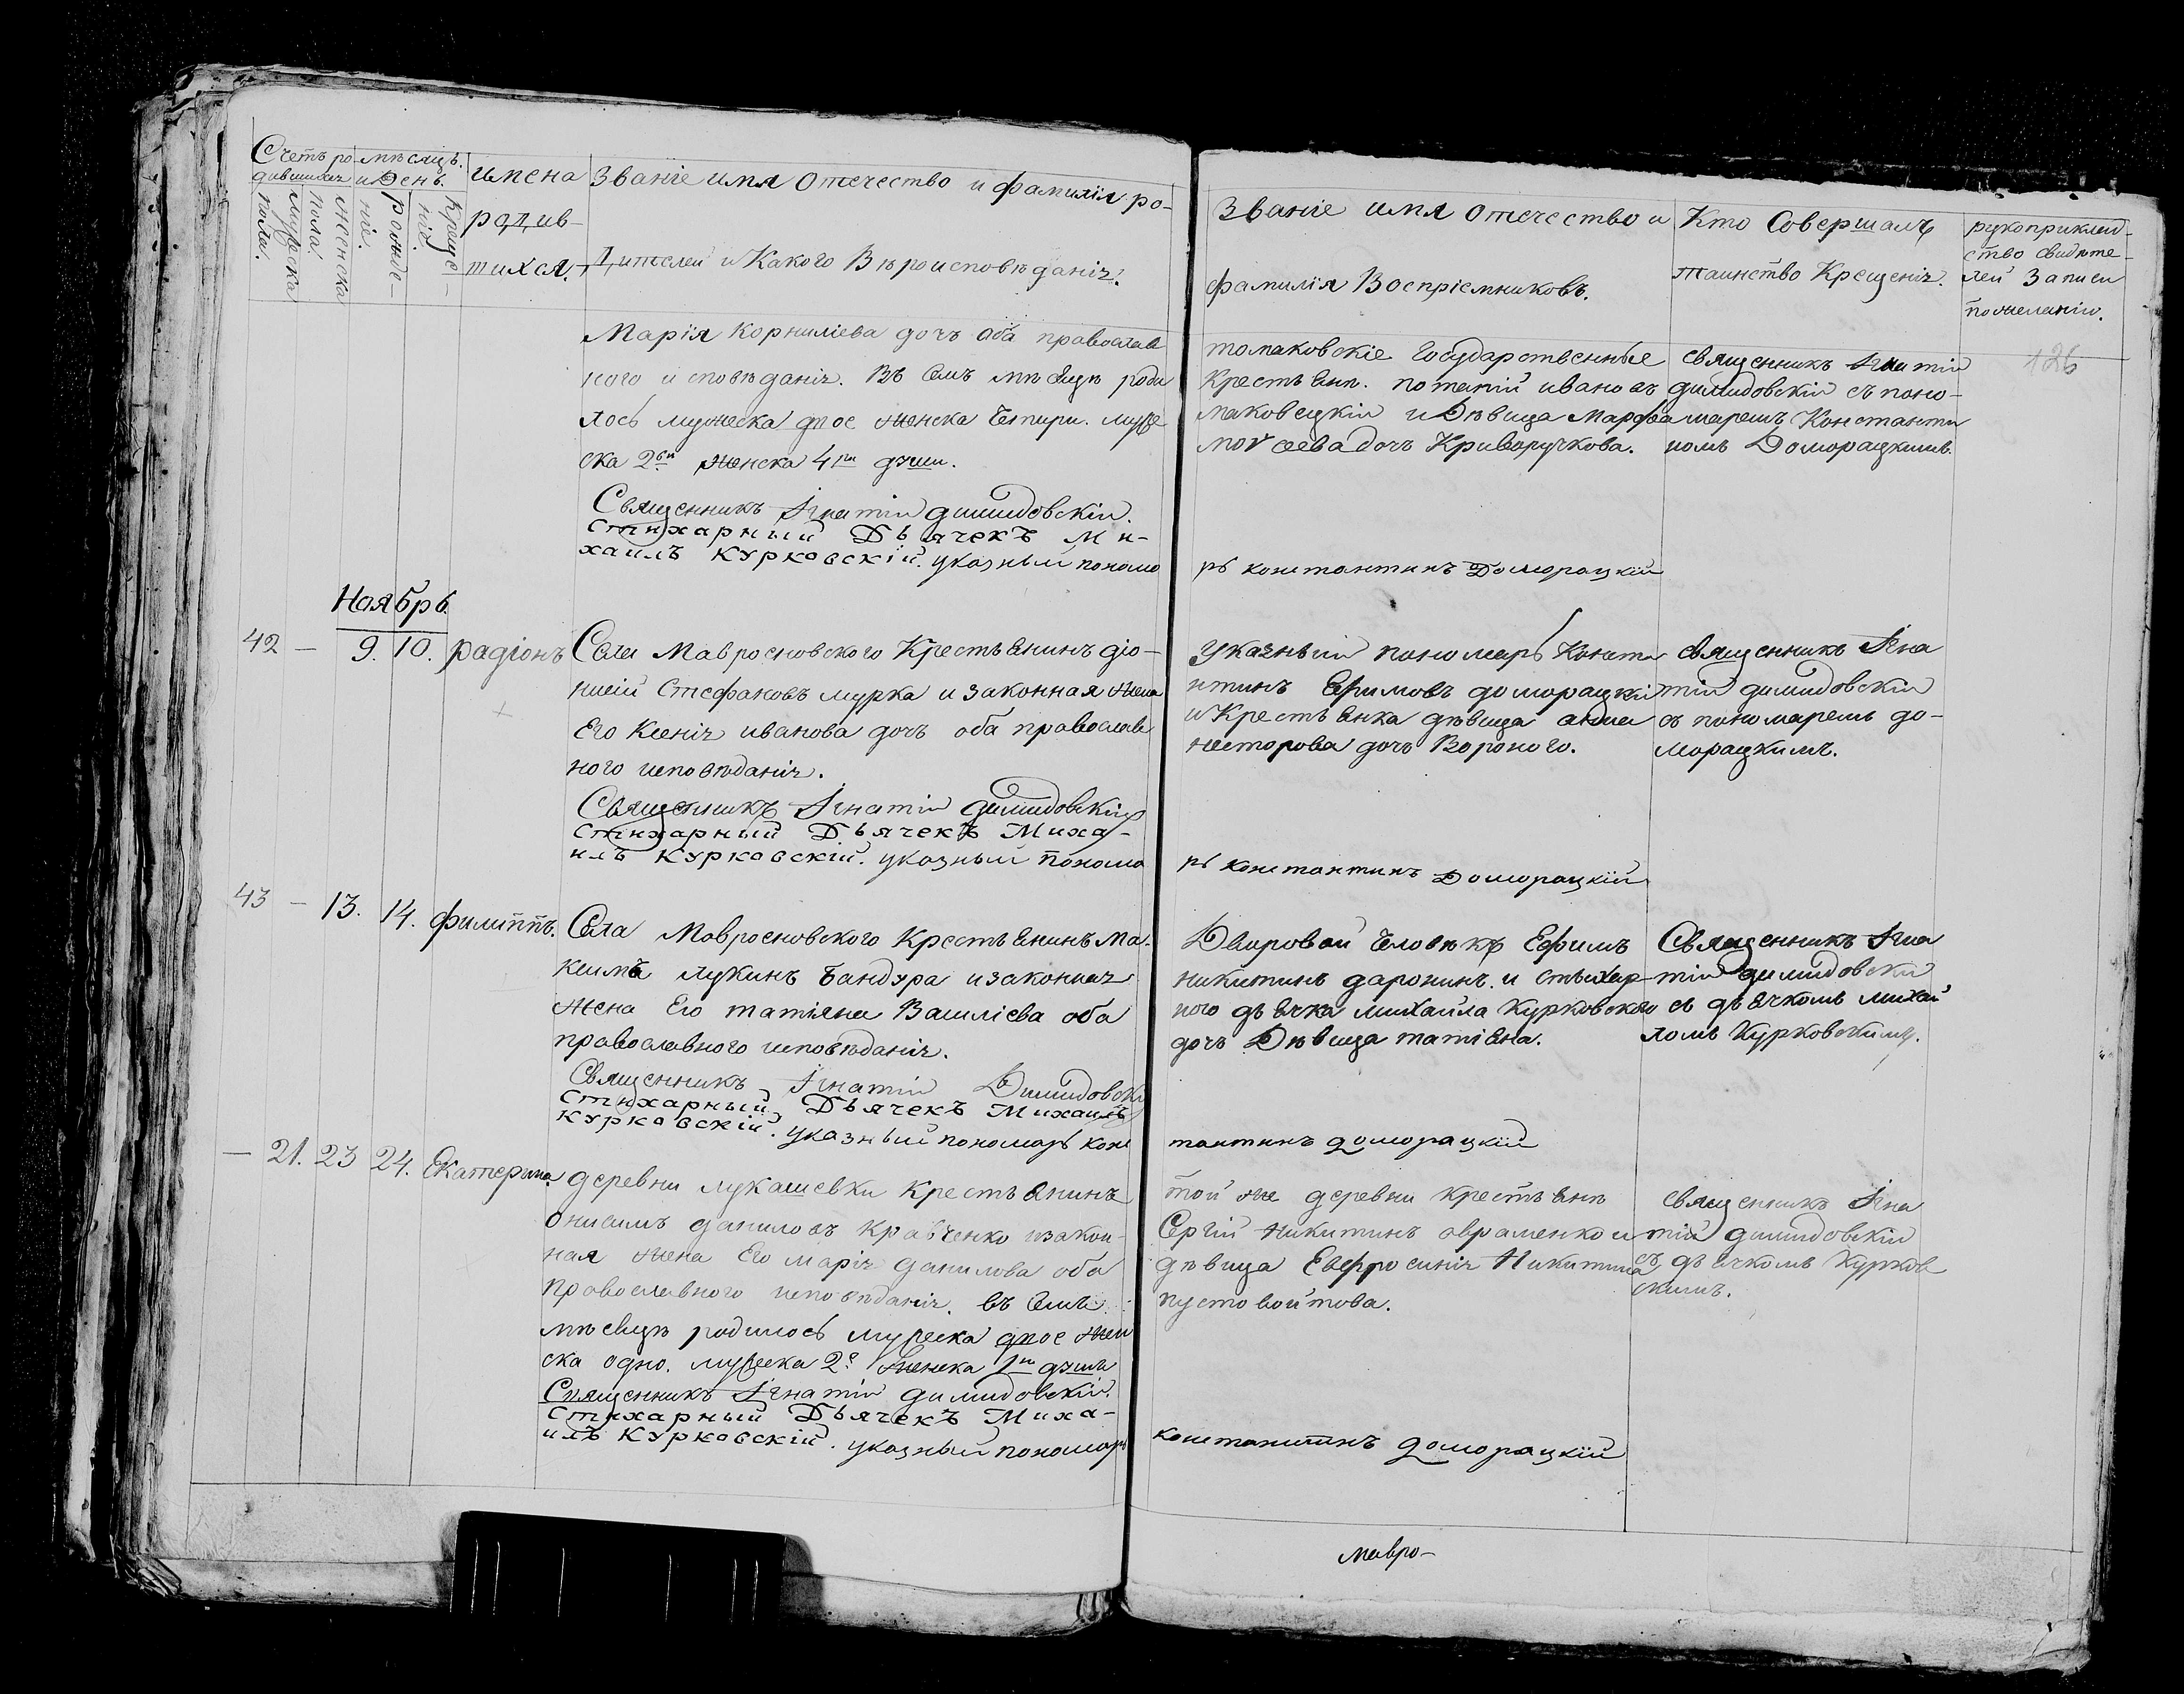 Счетъ ро-
дившихся
мѣсяцъ.
и День.
имена
родив-
шихся.
Званіе имя Отечество и фамилія ро-
дителей и Какого Вѣроисповѣданія.
Званіе имя отечество и
фамилія Воспріемниковъ.
Кто Совершалъ
таинство Крещенія.
рукоприклад-
ство свидѣте-
лей Записи
по желанію.
Мужеска
пола.
Женска
пола.
рожде-
ніе.
Креще-
ніе.
Марія Корниліева дочь оба православ
ного исповѣданія. Въ семъ мѣсяцѣ роди
лось мужеска двое женска Четыри. муже
ска 2 женска 4 души.
Священникъ Игнатій Димидовскій.
Стихарный Дьячекъ Ми-
хаилъ Курковскій. указный понома
томаковскіе Государственные
Крестьяне. потапій ивановъ
маковецкій и Дѣвица Марфа
моѵсеева дочь Криворучкова.
рь константинъ Доморацкій
священникъ Игнатій
димидовскій съ поно-
маремъ Константи
номъ Доморацкимъ.
126
Ноябрь.
42 — 9. 10. радіонъ
Села Мавросновского Крестьянинъ діо-
нисій Стефановъ мурка и законная жена
Его Ксенія иванова дочь оба православ
ного исповѣданія.
Священникъ Игнатій димидовскій
Стихарный Дьячекъ Миха-
илъ Курковскій. указный понома
Указный пономарь Конста
нтинъ Ефимовъ доморацкій
и Крестьянка дѣвица анна
несторова дочь Вороного.
рь константинъ Доморацкій
священникъ Игна
тій димидовскій
съ пономаремъ до-
морацкимъ.
43 — 13. 14. филиппъ.
Села Мавросновского Крестьянинъ Ма-
ксимъ лукинъ Бандура и законная
жена Его татіяна Василіева оба
православного исповѣданія.
Священникъ Игнатій Димидовскі
Стихарный Дьячекъ Михаилъ
Курковскій. указный пономарь конс
Дворовой Человѣкъ Ефимъ
никитинъ даронинъ. и стихар-
ного дьячка михаила Курковского
дочь Дѣвица татіяна.
тантинъ доморацкій
Священникъ Игна
тій димидовскій
съ дьячкомъ михаи
ломъ Курковскимъ.
— 21. 23 24. Екатерина
деревни лукашевки крестьянинъ
онисимъ даниловъ кравченко и закон-
ная жена Его марія данилова оба
православного исповѣданія. въ семъ
мѣсяцѣ родилось мужеска двое жен
ска одно. мужеска 2 женска 1 душа
Священникъ Игнатій димидовскій.
Стихарный Дьячекъ Миха-
илъ Курковскій. указный пономарь
той же деревни крестьяне
Сергій никитинъ авраменко и
дѣвица Евфросинія Никитина
пустовойтова.
константинъ доморацкій
священникъ Игна
тій димидовскій
съ дьячкомъ Курков
скимъ.
Мавро-